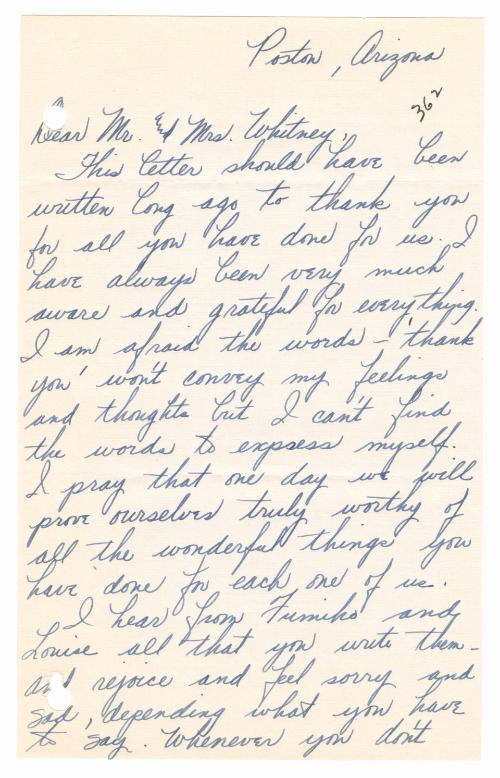 Poston, Arizona
362
Dear Mr. & Mrs. Whitney,
This letter should have been
written long ago to thank you
for all you have done for us. I
have always been very much
aware and grateful for everything.
I am afraid the words - 'thank
you' won't convey my feelings
and thoughts but I can't find
the words to express myself.
I pray that one day we will
prove ourselves truly worthy of
all the wonderful things you
have done for each one of us.
I hear from Fumiko and
Louise all that you write them -
and rejoice and feel sorry and
sad, depending what you have
to say. Whenever you don't